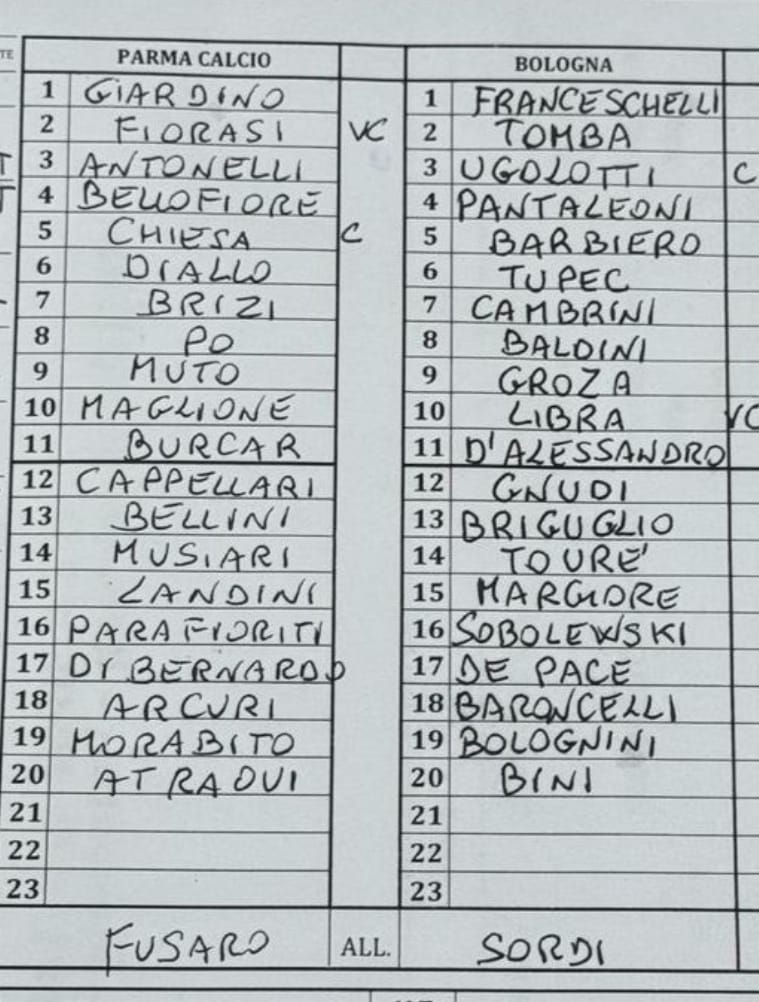 PARMA CALCIO BOLOGNA
1 GIARDINO 1 FRANCESCHELLI
2 FIORASI VC 2 TOMBA
3 ANTONELLI 3 UGOLOTTI C
4 BELLOFIORE 4 PANTALEONI
5 CHIESA C 5 BARBIERO
6 DIALLO 6 TUPEC
7 BRIZI 7 CAMBRINI
8 PO 8 BALDINI
9 MUTO 9 GROZA
10 MAGLIONE 10 LIBRA VC
11 BURCAR 11 D'ALESSANDRO
12 CAPPELLARI 12 GNUDI
13 BELLINI 13 BRIGUGLIO
14 MUSIARI 14 TOURE'
15 LANDINI 15
16 PARAFIORITI 16 SOBOLEWSKI
17 DI BERNARDO 17 DE PACE
18 ARCURI 18 BARONCELLI
19 MORABITO 19 BOLOGNINI
20 ATRAOUI 20 BINI
21 21
22 22
23 23
FUSARO ALL. SORDI